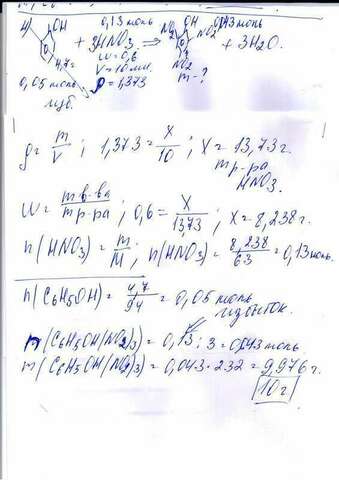 4) OH 0,13 моль OH 0,043 моль
+ 3HNO₃ ⟹ NO₂ NO₂ + 3H₂O.
4,7г w=0,6 NO₂
0,05 моль V=10мл. m-?
изб. ρ=1,373
ρ= m/V ; 1,373= X/10 ; X= 13,73г.
mр-ра
HNO₃.
w= mв-ва/mр-ра ; 0,6= X/13,73 ; X= 8,238г.
n(HNO₃)= m/M , n(HNO₃)= 8,238/63 = 0,13моль.
n(C₆H₅OH)= 4,7/94 = 0,05 моль
избыток.
n(C₆H₅OH(NO₂)₃)= 0,13 : 3= 0,043 моль
m(C₆H₅OH(NO₂)₃)= 0,043·232= 9,976г.
10г